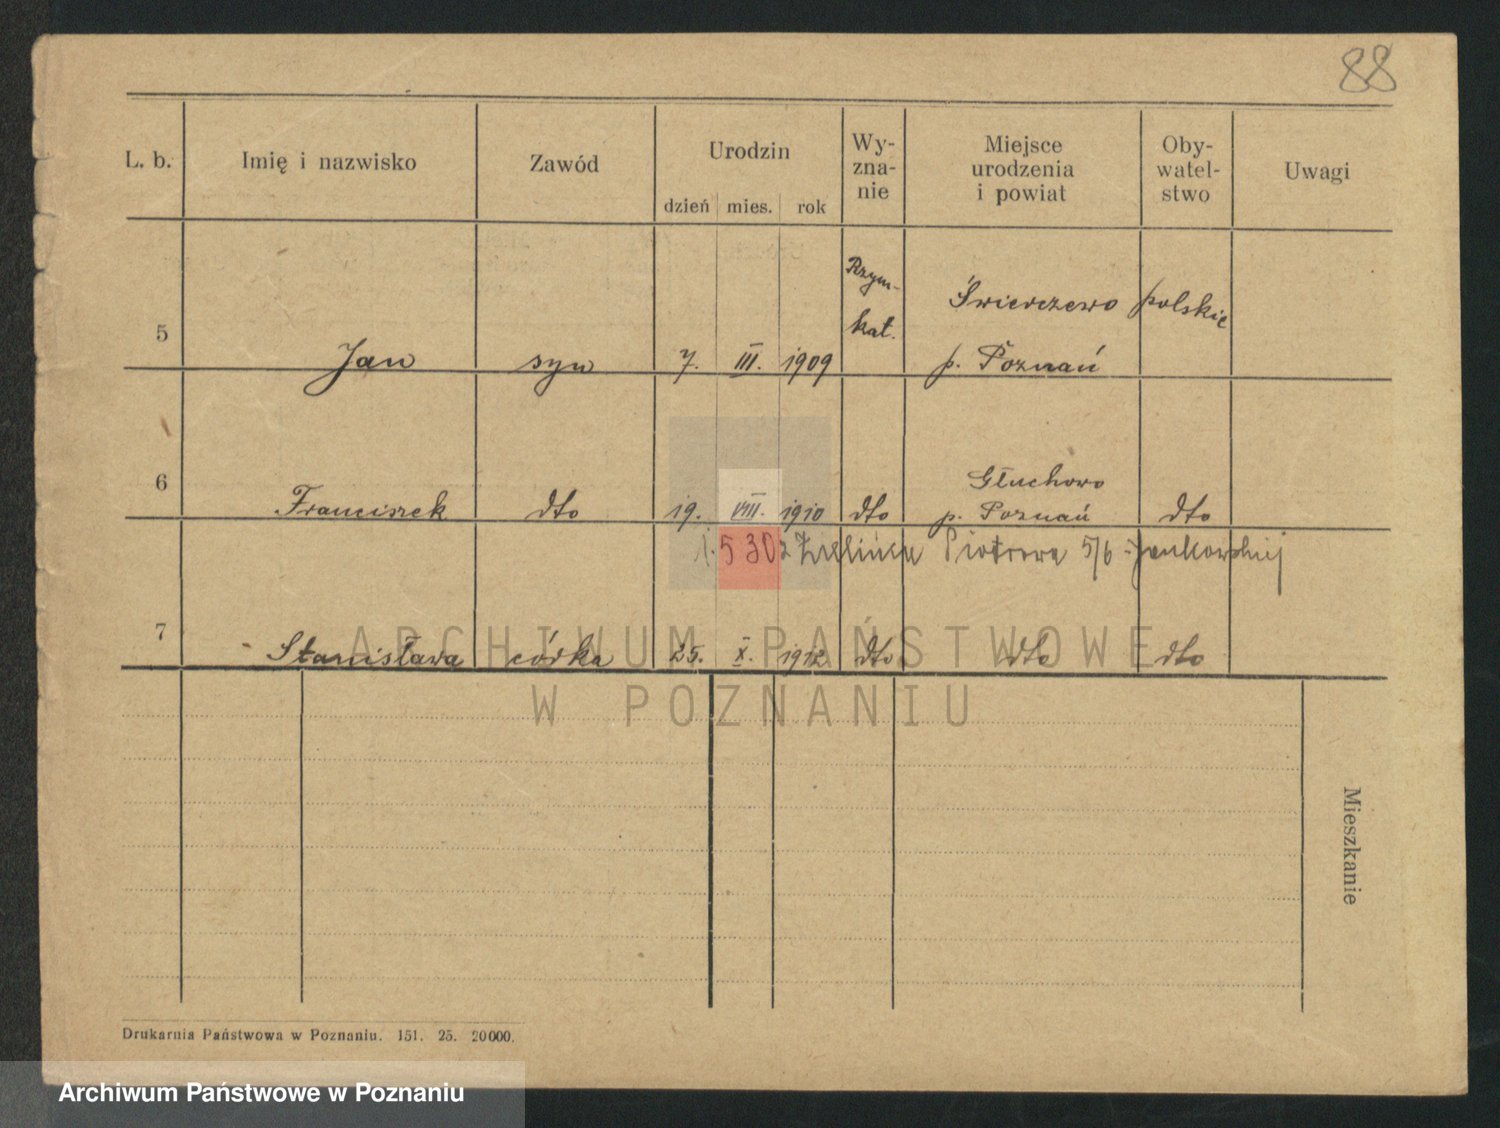 88
L. b. Imię i nazwisko Zawód Urodzin dzień mies. rok Wy-zna-nie Miejsce urodzenia i powiat Oby-watel-stwo Uwagi
Rzym-
Świerczewo polskie
5 kat.
Jan syn 7. III. 1909 p. Poznań
6 Głuchowo
Franciszek dto 19. VIII. 1910 dto p. Poznań dto
1. 5 30 z Piotrowa 5/6
7
Stanisława córka 25. X. 1912 dto dto dto
ARCHIWUM PAŃSTWOWE
W POZNANIU
Mieszkanie
Drukarnia Państwowa w Poznaniu. 151. 25. 20000.
Archiwum Państwowe w Poznaniu